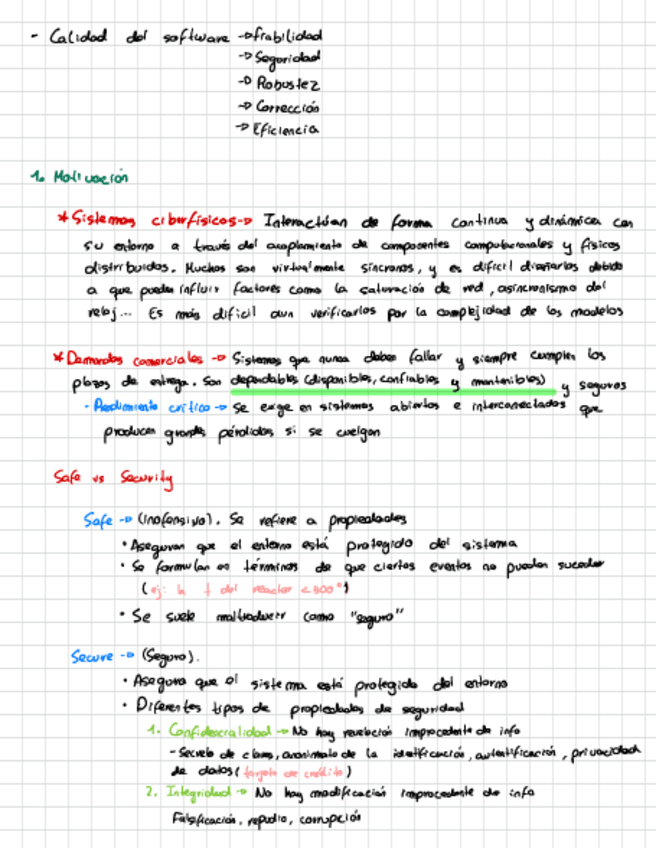 - Calidad del software → fiabilidad
→ Seguridad
→ Robustez
→ Corrección
→ Eficiencia
1. Motivación
* Sistemas ciberfísicos → Interactúan de forma continua y dinámica con
su entorno a través del acoplamiento de componentes computacionales y físicos
distribuidos. Muchos son virtualmente síncronos, y es difícil diseñarlos debido
a que pueden influir factores como la saturación de red, asincronismo del
reloj... Es más difícil aun verificarlos por la complejidad de los modelos
* Demandas comerciales → Sistemas que nunca deben fallar y siempre cumplen los
plazos de entrega. Son dependables (disponibles, confiables y mantenibles) y seguros
· Rendimiento crítico → Se exige en sistemas abiertos e interconectados que
producen grandes pérdidas si se cuelgan
Safe vs Security
Safe → (Inofensivo). Se refiere a propiedades
· Aseguran que el entorno está protegido del sistema
· Se formulan en términos de que ciertos eventos no pueden suceder
(ej: la t del reactor <500°)
· Se suele maltraducir como "seguro"
Secure → (Seguro).
· Asegura que el sistema está protegido del entorno
· Diferentes tipos de propiedades de seguridad
1. Confidencialidad → No hay revelación improcedente de info
- Secreto de claves, anonimato de la identificación, autentificación, privacidad
de datos (tarjeta de crédito)
2. Integridad → No hay modificación improcedente de info
Falsificación, repudio, corrupción